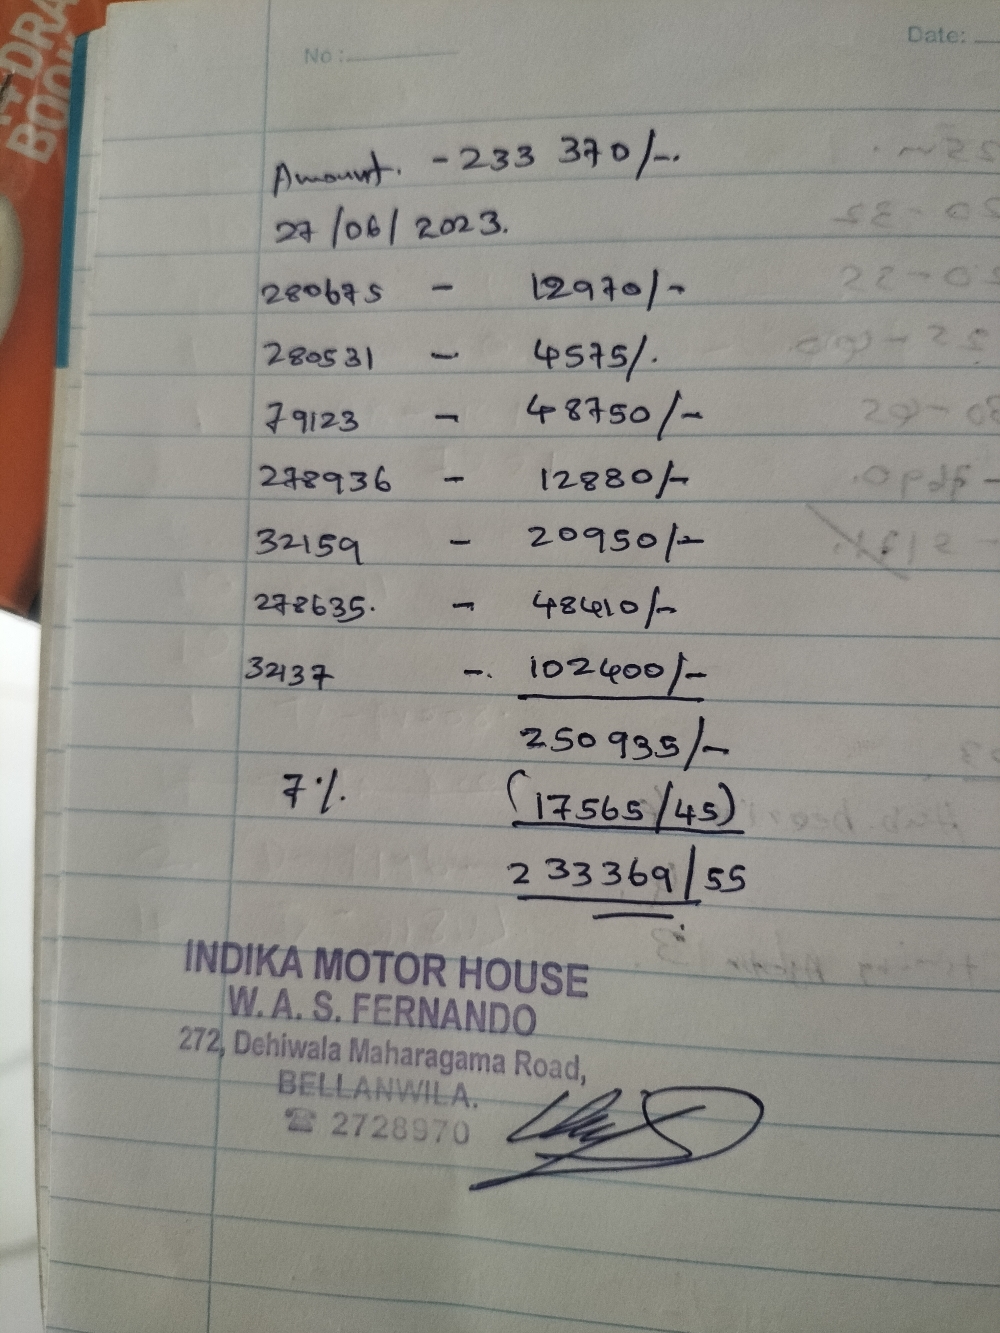 DRA
BOO
No:
Date:
Amount. - 233 370/-.
27/06/2023.
280675 - 12970/-
280531 - 4575/.
79123 - 48750/-
278936 - 12880/-
32159 - 20950/-
278635. - 48410/-
32137 -. 102400/-
250935/-
7%. (17565/45)
233369/55
INDIKA MOTOR HOUSE
W. A. S. FERNANDO
272, Dehiwala Maharagama Road,
BELLANWILA.
☎ 2728970